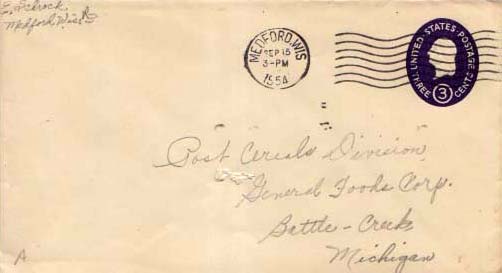 E. Schrock
Medford, Wis.
MEDFORD, WIS
SEP 15
3-PM
1954
UNITED·STATES·POSTAGE
THREE 3 CENTS
Post Cereals Division
General Foods Corp.
Battle-Creek
Michigan
A